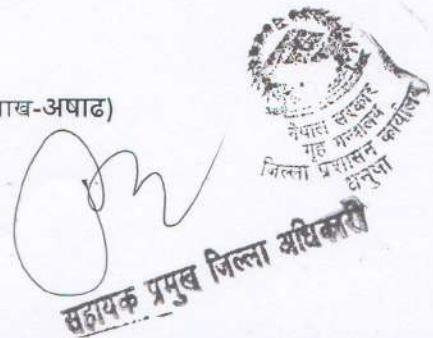 ाख-अषाढ)
नेपाल सरकार
गृह मन्त्रालय
जिल्ला प्रशासन कार्यालय
धनुषा
सहायक प्रमुख जिल्ला अधिकारी